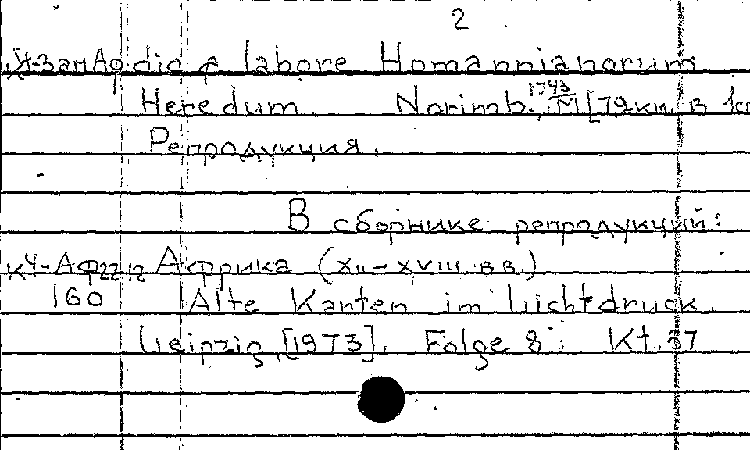 2
studio & labore Homannianorum
Heredum. Norimb., 1743 M [79км в 1см
Репродукция.
В сборнике репродукций:
К4-Аф 22.12 Африка (XII-XVIII в.в.)
160 Alte Karten im Lichtdruck
Leipzig, [1973]. Folge 8: Kt. 37